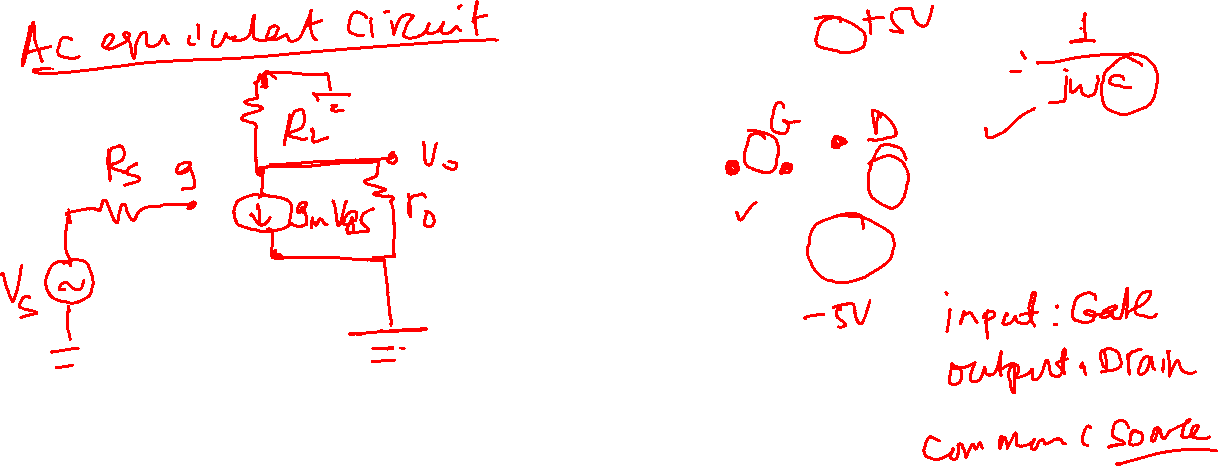 AC equivalent circuit
RL
Vo
Rs
g
gmVgs
ro
Vs
+5V
1
jwc
G
D
-5V
input: Gate
output. Drain
common ( Source